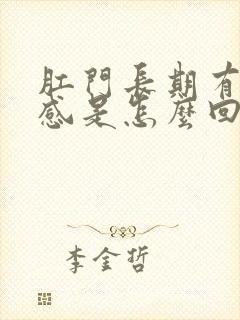 肛門長期有
感是怎麼回
李金哲